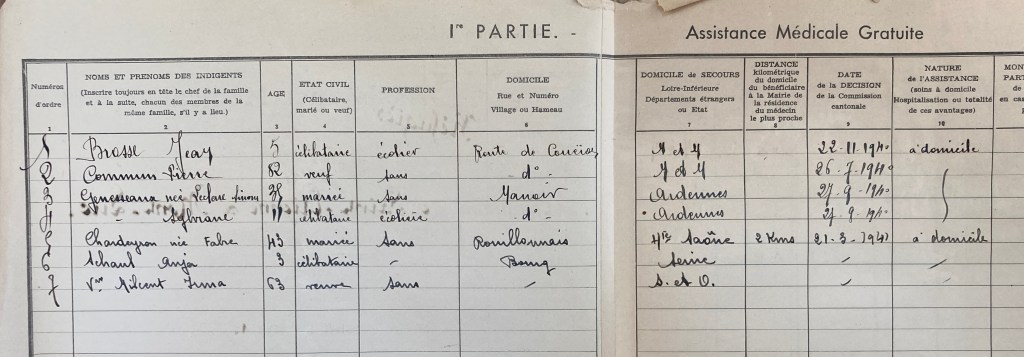 Iʳᵉ PARTIE. - Assistance Médicale Gratuite
Numéros d'ordre
NOMS ET PRENOMS DES INDIGENTS
(Inscrire toujours en tête le chef de la famille
et à la suite, chacun des membres de la
même famille, s'il y a lieu.)
AGE
ETAT CIVIL
(Célibataire,
marié ou veuf)
PROFESSION
DOMICILE
Rue et Numéro
Village ou Hameau
DOMICILE de SECOURS
Loire-Inférieure
Départements étrangers
ou Etat
DISTANCE
kilométrique
du domicile
du bénéficiaire
à la Mairie de
la résidence
du médecin
le plus proche
DATE
de la DECISION
de la Commission
cantonale
NATURE
de l'ASSISTANCE
(soins à domicile
Hospitalisation ou totalité
de ces avantages)
1 2 3 4 5 6 7 8 9 10
1 Brosse Jean 5 célibataire écolier Route de M et M 22-11-1940 à domicile
2 Commun Pierre 82 veuf sans d° - M et M 26-7-1940
3 née mariée sans Manoir Ardennes 27-9-1940
4 - 11 célibataire écolière d° - Ardennes 27-9-1940
5 Chardeyron née Fabre 43 mariée sans Rouillonnais Hte Saône 2 Kms 21-3-1941 à domicile
6 Schaul Anja 3 célibataire - Bourg Seine
7 Vve 63 veuve sans S. et O.